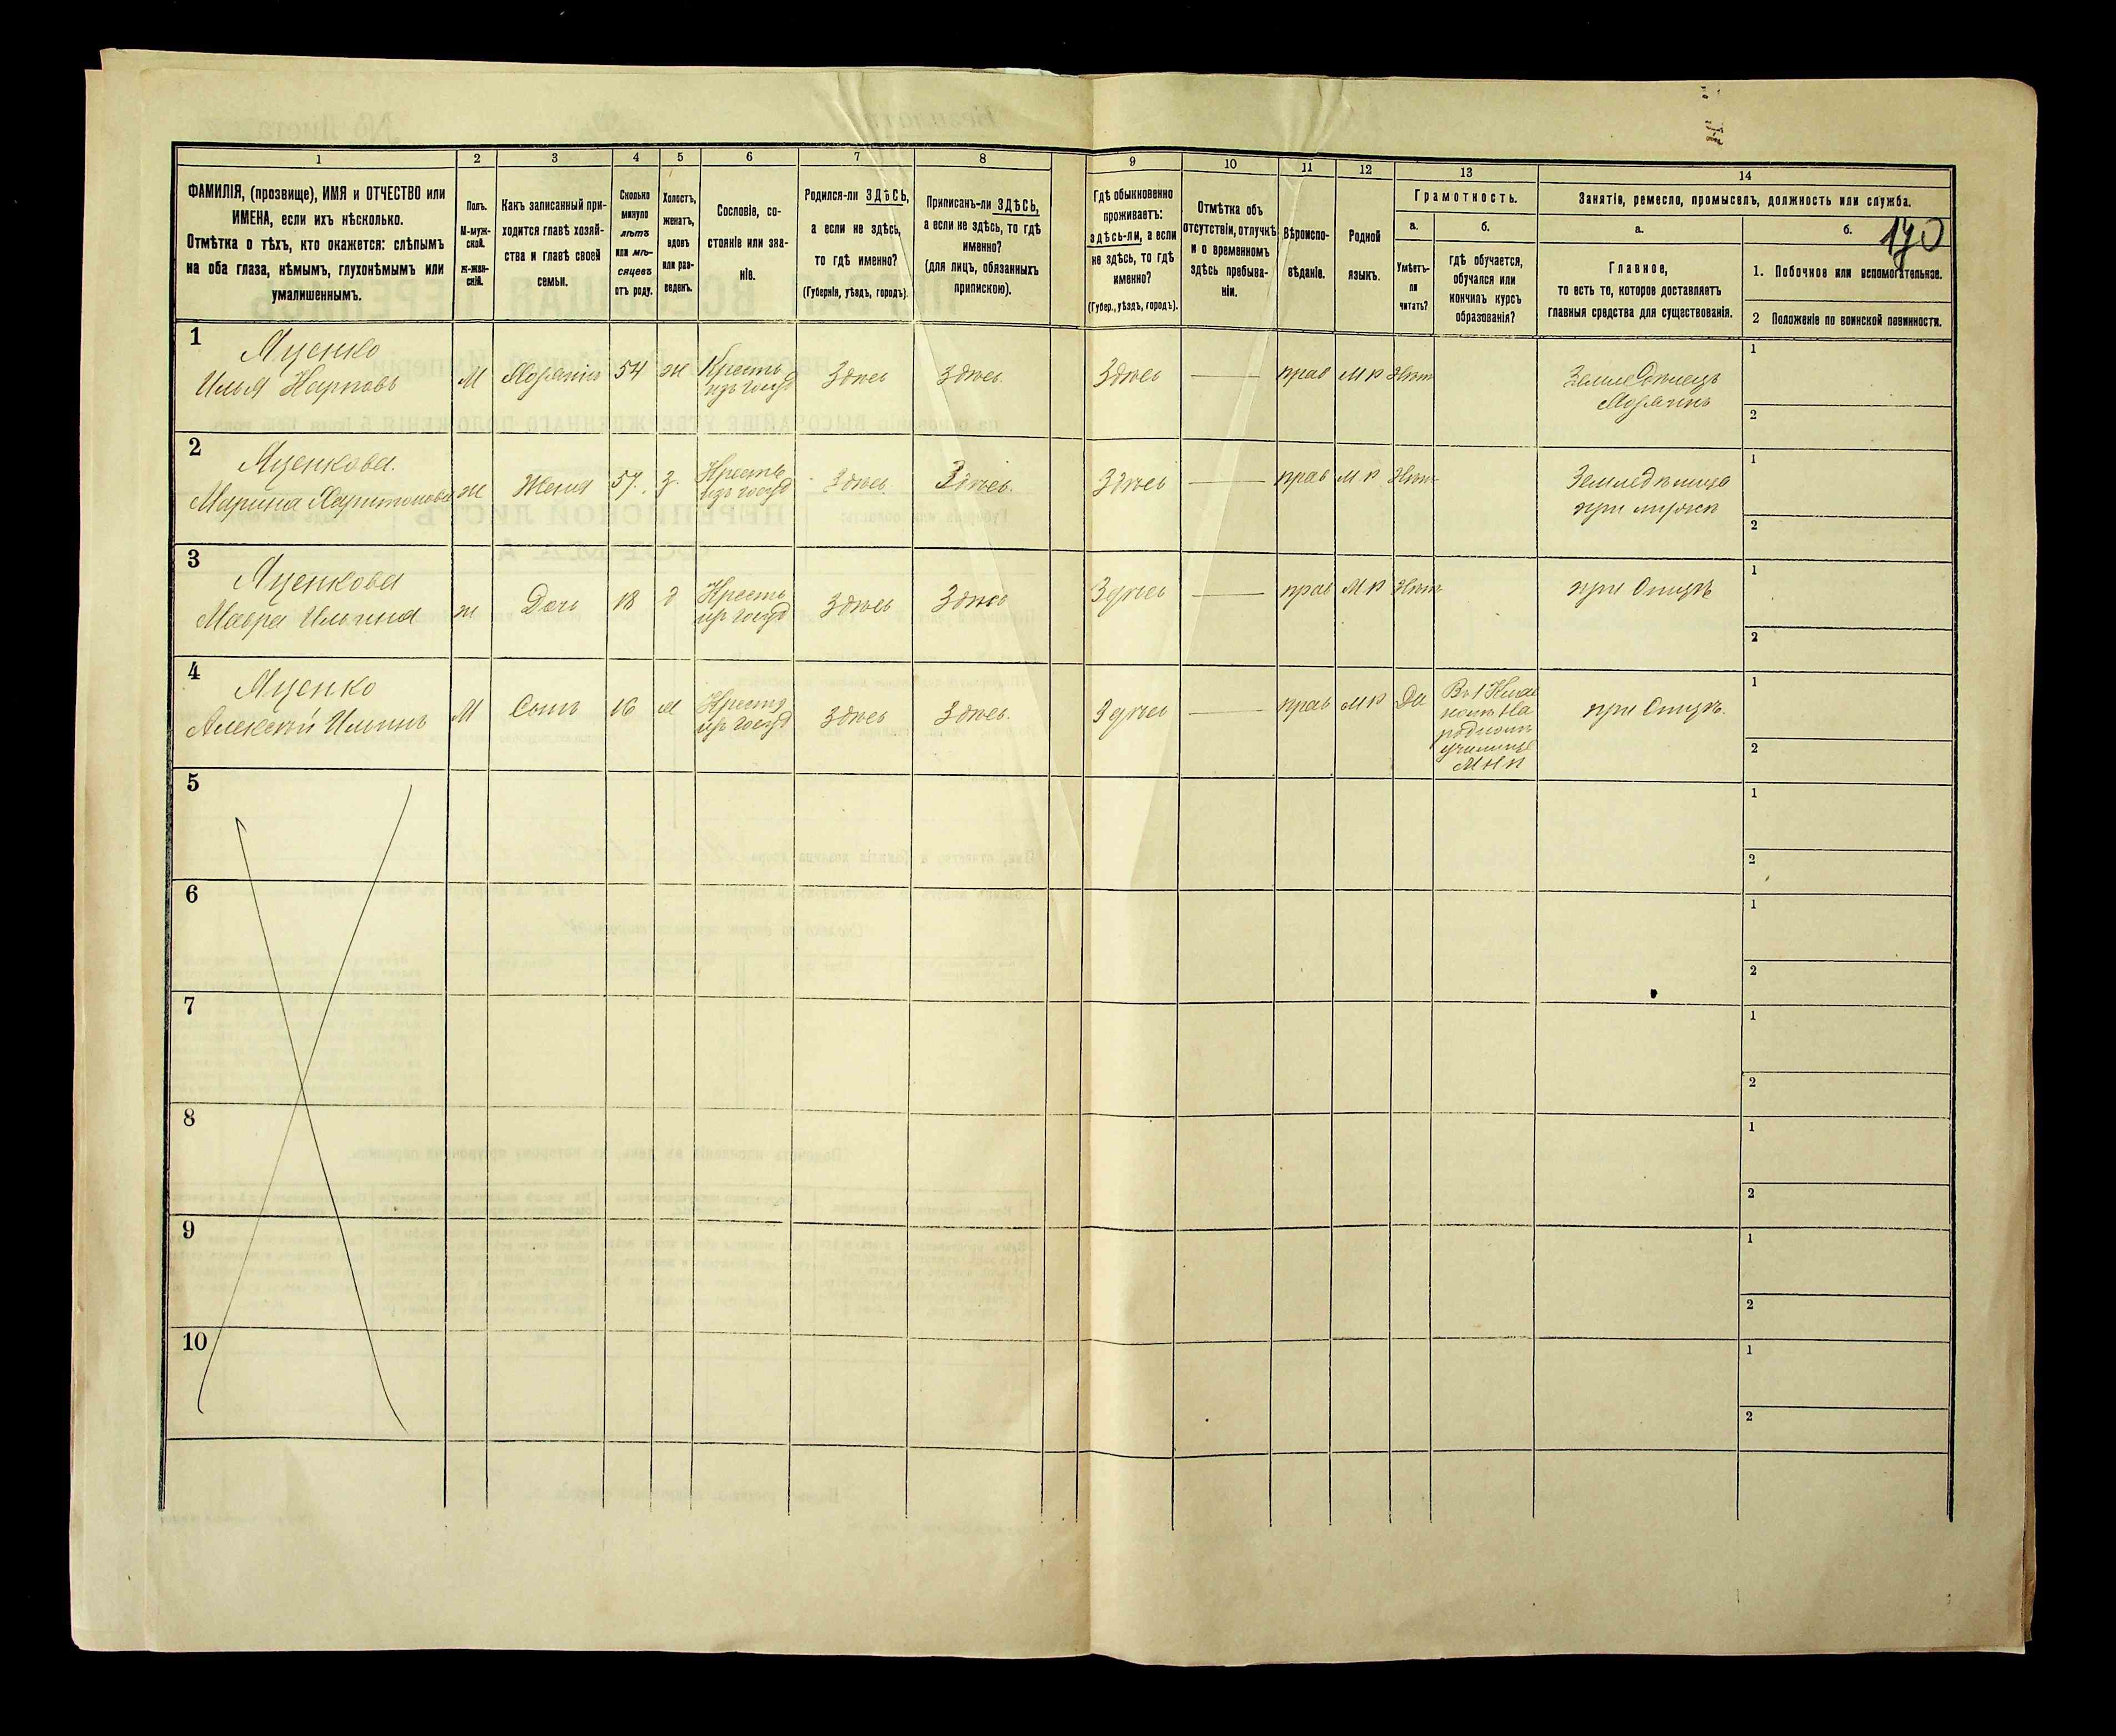 1
2
3
4
5
6
7
8
9
10
11
12
13
14
ФАМИЛІЯ, (прозвище), ИМЯ и ОТЧЕСТВО или
ИМЕНА, если ихъ нѣсколько.
Отмѣтка о тѣхъ, кто окажется: слѣпымъ
на оба глаза, нѣмымъ, глухонѣмымъ или
умалишеннымъ.
Полъ.
М-муж-
ской.
ж-жен-
скій.
Какъ записанный при-
ходится главѣ хозяй-
ства и главѣ своей
семьи.
Сколько
минуло
лѣтъ
или мѣ-
сяцевъ
отъ роду.
Холостъ,
женатъ,
вдовъ
или раз-
веденъ.
Сословіе, со-
стояніе или зва-
ніе.
Родился-ли ЗДѢСЬ,
а если не здѣсь,
то гдѣ именно?
(Губернія, уѣздъ, городъ).
Приписанъ-ли ЗДѢСЬ,
а если не здѣсь, то гдѣ
именно?
(для лицъ, обязанныхъ
припискою).
Гдѣ обыкновенно
проживаетъ:
здѣсь-ли, а если
не здѣсь, то гдѣ
именно?
(Губер., уѣздъ, городъ).
Отмѣтка объ
отсутствіи, отлучкѣ
и о временномъ
здѣсь пребыва-
ніи.
Вѣроиспо-
вѣданіе.
Родной
языкъ.
Грамотность.
а.
Умѣетъ-
ли
читать?
б.
гдѣ обучается,
обучался или
кончилъ курсъ
образованія?
Занятіе, ремесло, промыселъ, должность или служба.
а.
Главное,
то есть то, которое доставляетъ
главныя средства для существованія.
б.
190
1. Побочное или вспомогательное.
2 Положеніе по воинской повинности.
1
Яценко
Илья Карповъ
М
Хозяинъ
54
ж
Крестъ
изъ госуд
Здѣсь
Здѣсь
Здѣсь
прав
М Р
Нѣт
Земледѣлецъ
Хозяинъ
1
2
2
Яценкова.
Марина Харитонова
ж
Жена
57.
з.
Крестъ
изъ госуд
Здѣсь
Здѣсь.
Здѣсь
прав
М Р
Нѣт
при мужѣ
1
2
3
Яценкова
Мавра Ильина
ж
Дочь
18
д
Крестъ
изъ госуд
Здѣсь
Здѣсь
Здѣсь
прав
М Р
Нѣт
при Отцѣ
1
2
4
Яценко
Алексѣй Ильинъ
М
Сынъ
16
Крестъ
изъ госуд
Здѣсь
Здѣсь.
Здѣсь
прав
М Р
Да
родномъ
училищѣ
М Н П
при Отцѣ.
1
2
5
1
2
6
1
2
7
1
2
8
1
2
9
1
2
10
1
2